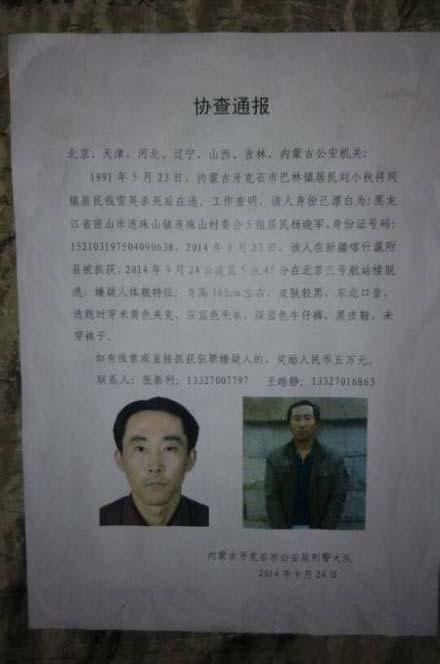 协查通报
北京、天津、河北、辽宁、山西、吉林、内蒙古公安机关：
1991年5月23日，内蒙古牙克石市巴林镇居民刘小秋将同
镇居民钱雪英杀死后在逃。工作查明，该人身份已漂白为：黑龙
江省密山市连珠山镇连珠山村委会5组居民杨晓军，身份证号码：
152103197504090638。2014年9月23日，该人在新疆喀什疏附
县被抓获，2014年9月24日凌晨5点45分在北京三号航站楼脱
逃。嫌疑人体貌特征：身高162cm左右，皮肤较黑，东北口音，
逃跑时穿米黄色夹克，深蓝色毛衣，深蓝色牛仔裤，黑皮鞋，未
穿袜子。
如有线索或直接抓获犯罪嫌疑人的，奖励人民币五万元。
联系人：张新利：13327007797 王皓静：13327016863
内蒙古牙克石市公安局刑警大队
2014年9月24日